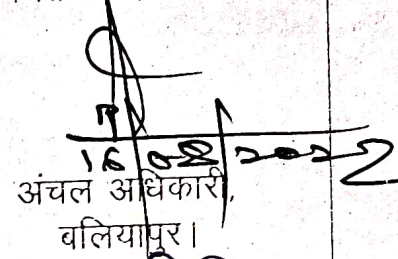 16/08/2022
अंचल अधिकारी,
बलियापुर।